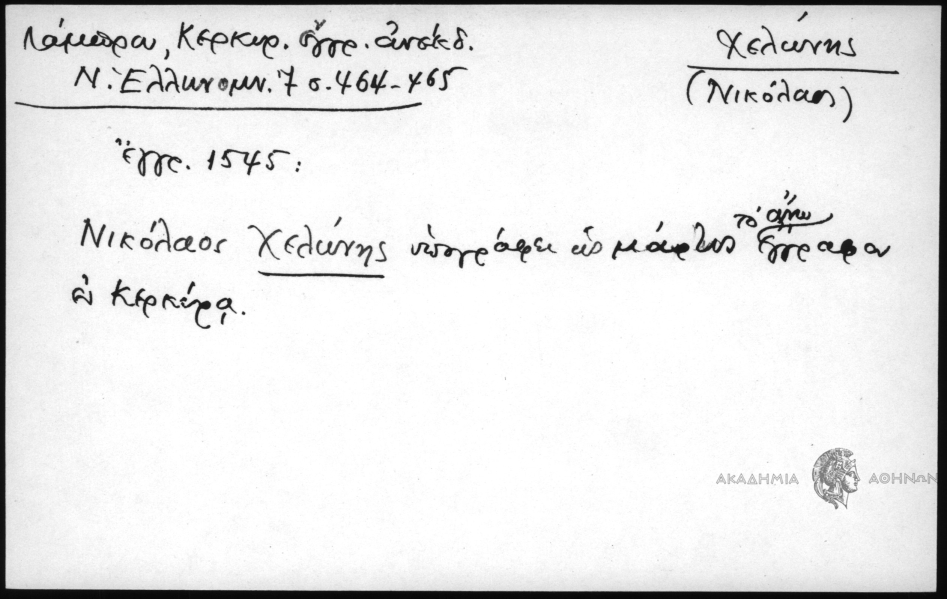 Λάμπρου, Κερκυρ. ἔγγρ. ἀνέκδ.
Ν. Ἑλληνομν. 7 σ. 464-465
Χελώνης
(Νικόλαος)
Ἔγγρ. 1545:
Νικόλαος Χελώνης ὑπογράφει ὡς μάρτυς τὸ ἄνω ἔγγραφον
ἐν Κερκύρᾳ.
ΑΚΑΔΗΜΙΑ ΑΘΗΝΩΝ